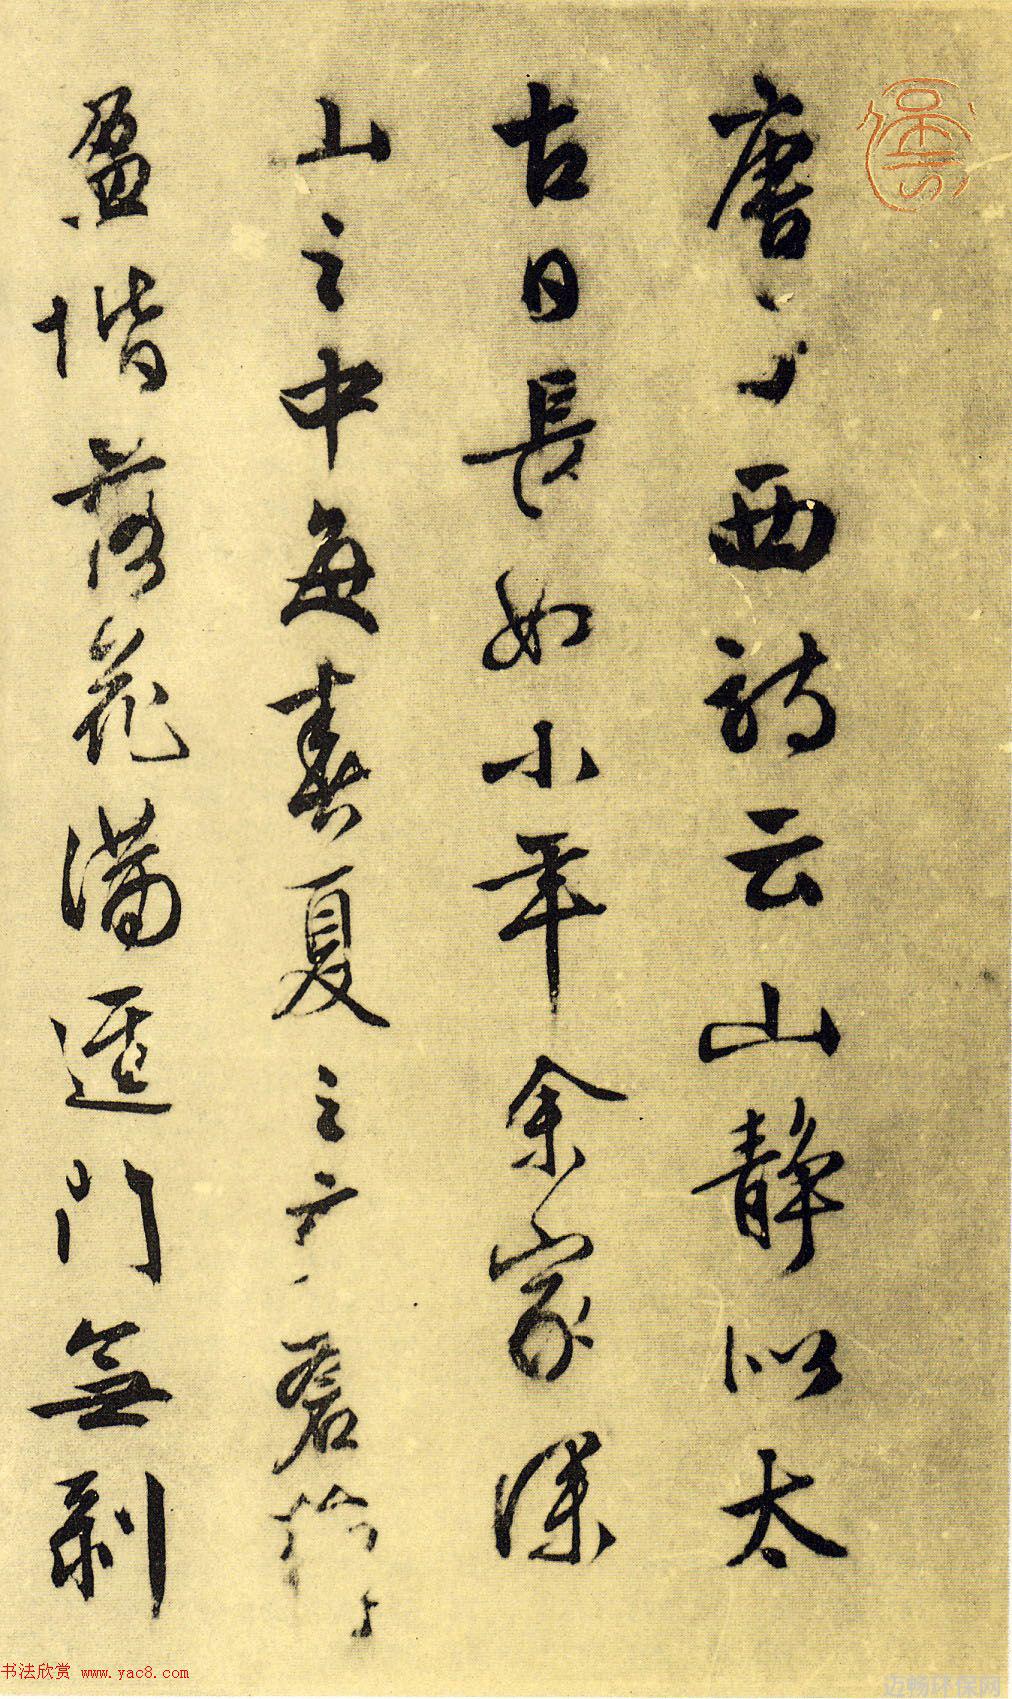 唐子西詩云山静似太
古日長如小年余家深
山之中每春夏之交蒼蘚
盈堦落花滿逕門無剥
书法欣赏 www.yac8.com
迈畅环保网